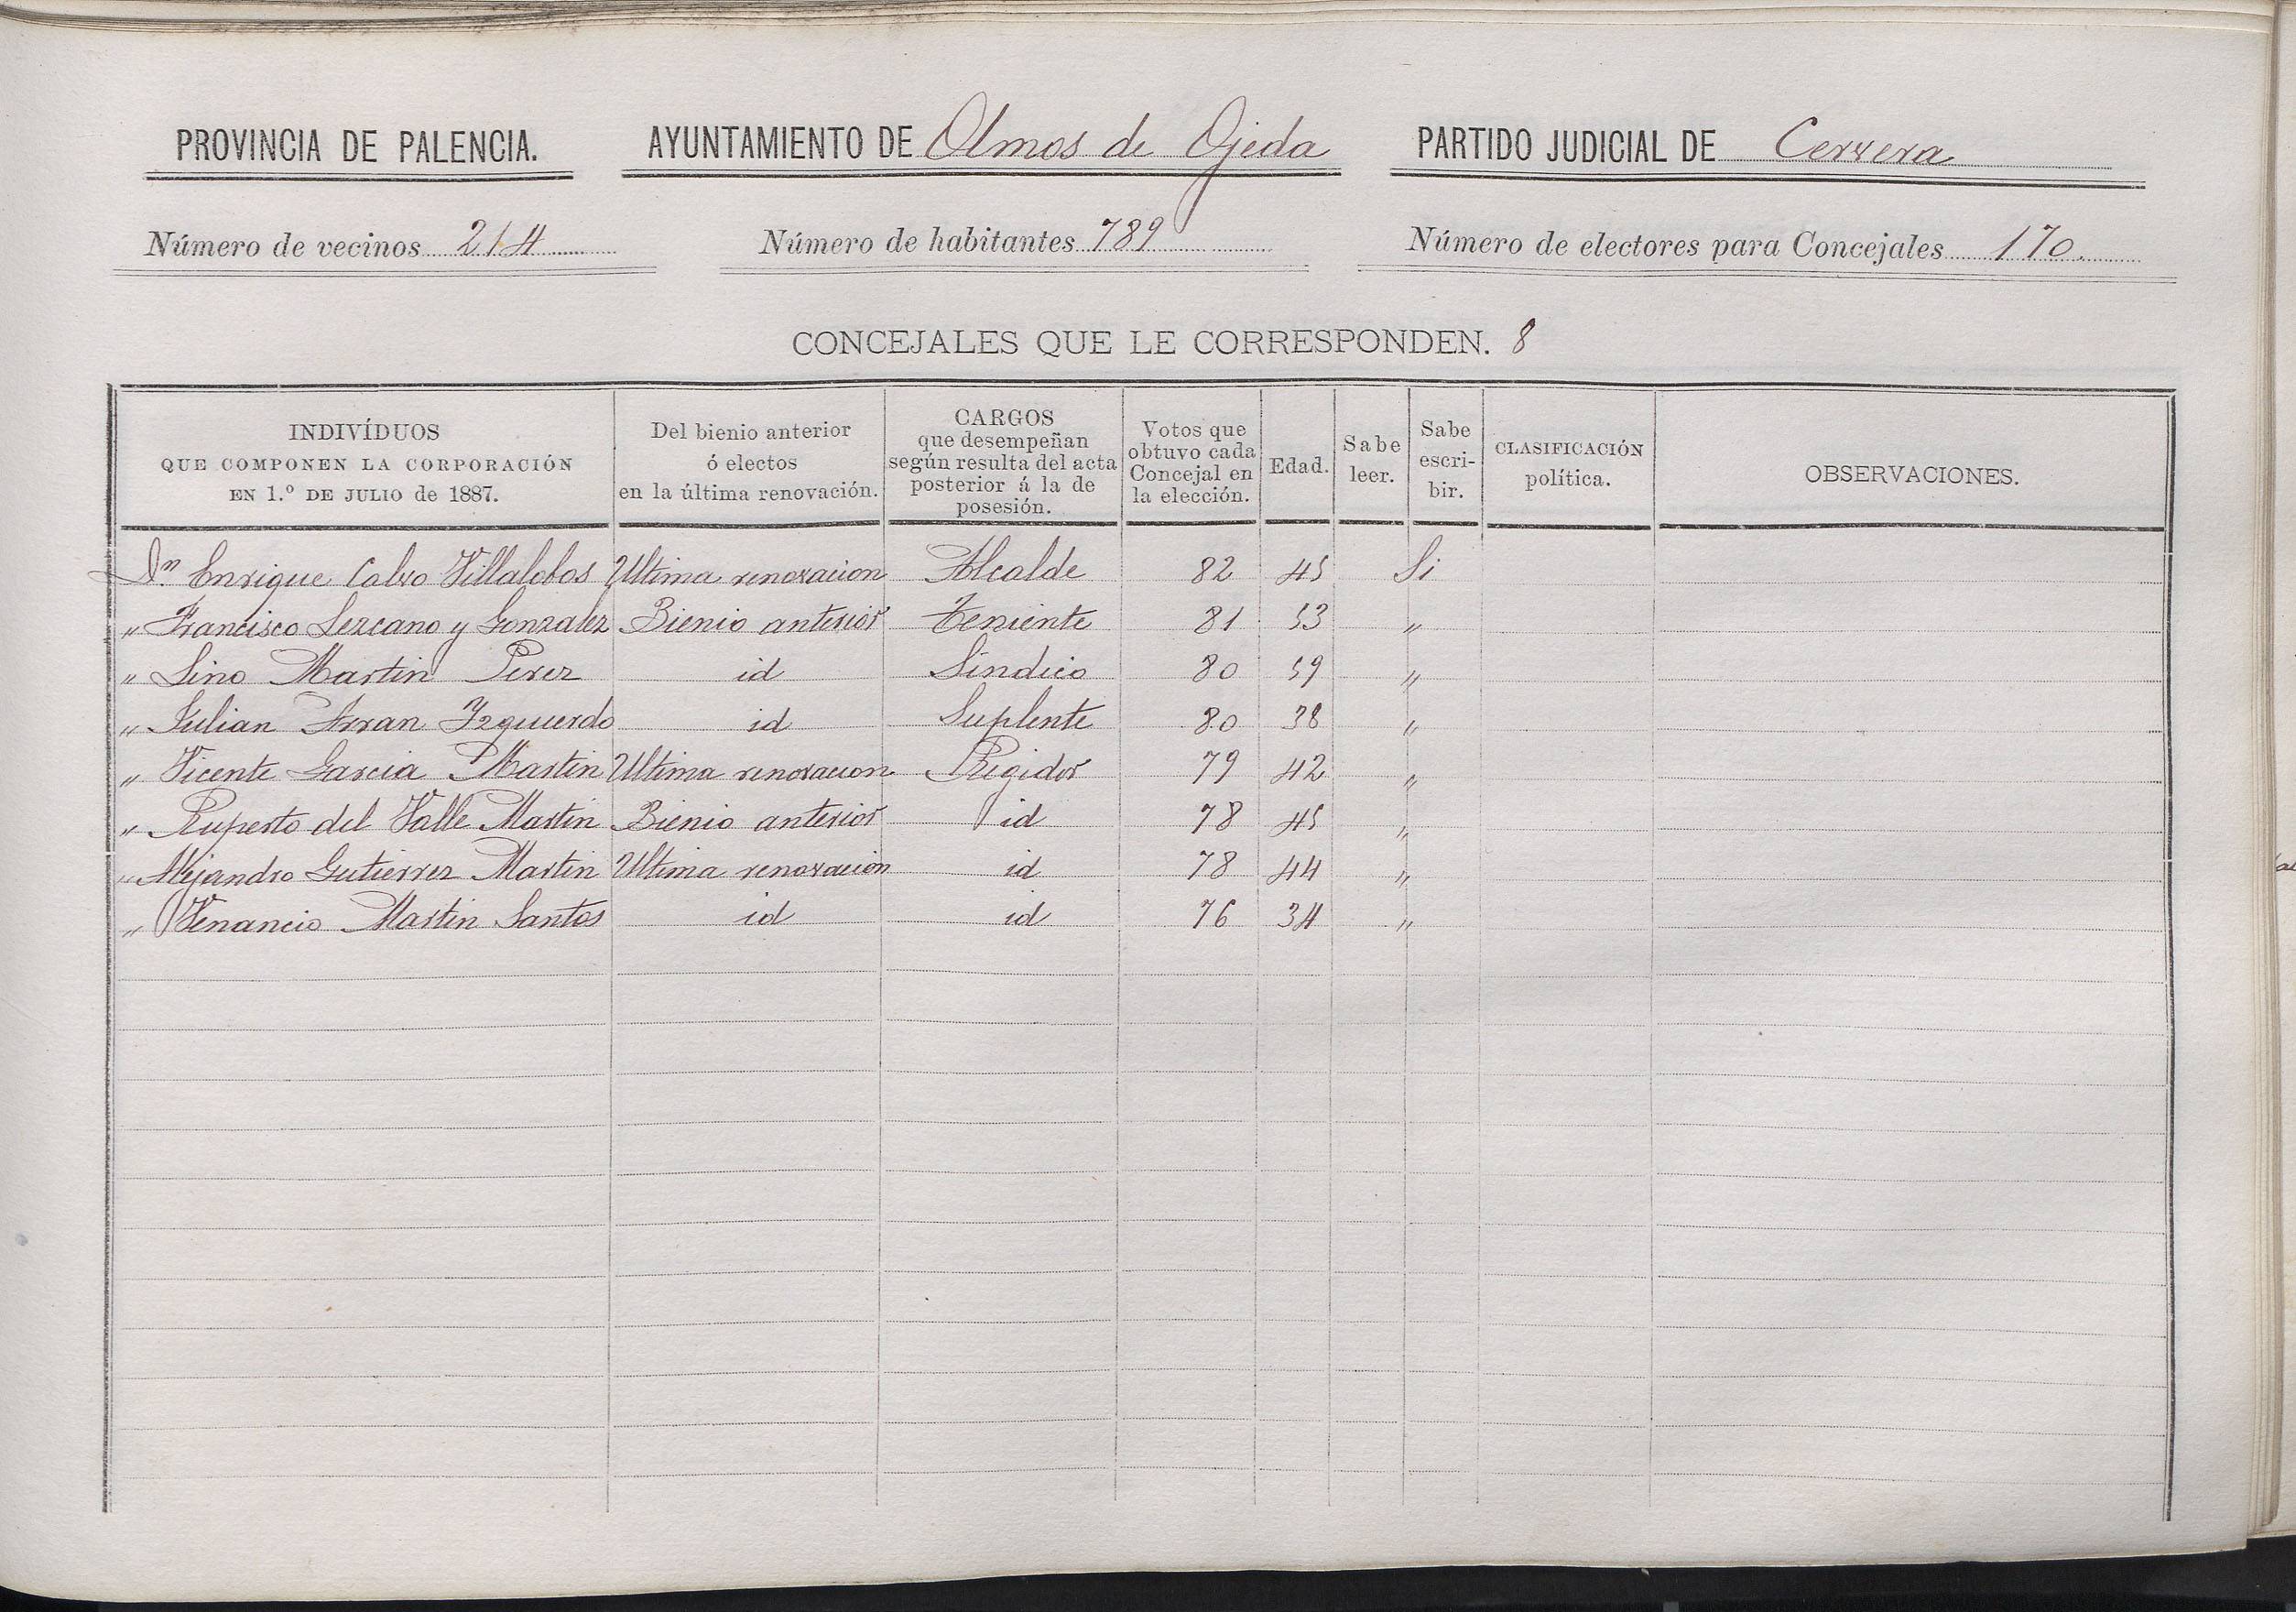 PROVINCIA DE PALENCIA. AYUNTAMIENTO DE Olmos de Ojeda PARTIDO JUDICIAL DE Cervera
Número de vecinos 214 Número de habitantes 789 Número de electores para Concejales 170.
CONCEJALES QUE LE CORRESPONDEN. 8
INDIVÍDUOS QUE COMPONEN LA CORPORACIÓN EN 1.º DE JULIO de 1887. Del bienio anterior ó electos en la última renovación. CARGOS que desempeñan según resulta del acta posterior á la de posesión. Votos que obtuvo cada Concejal en la elección. Edad. Sabe leer. Sabe escribir. CLASIFICACIÓN política. OBSERVACIONES.
Dn Enrique Calvo Villalobos Ultima renovacion Alcalde 82 45 Si
" Francisco Lezcano y Gonzalez Bienio anterior Teniente 81 53 "
" Lino Martin Perez id Sindico 80 59 "
" Julian Arran Izquierdo id Suplente 80 38 "
" Vicente Garcia Martin Ultima renovacion Regidor 79 42 "
" Ruperto del Valle Martin Bienio anterior id 78 45 "
" Alejandro Gutierrez Martin Ultima renovacion id 78 44 "
" Venancio Martin Santos id id 76 34 "